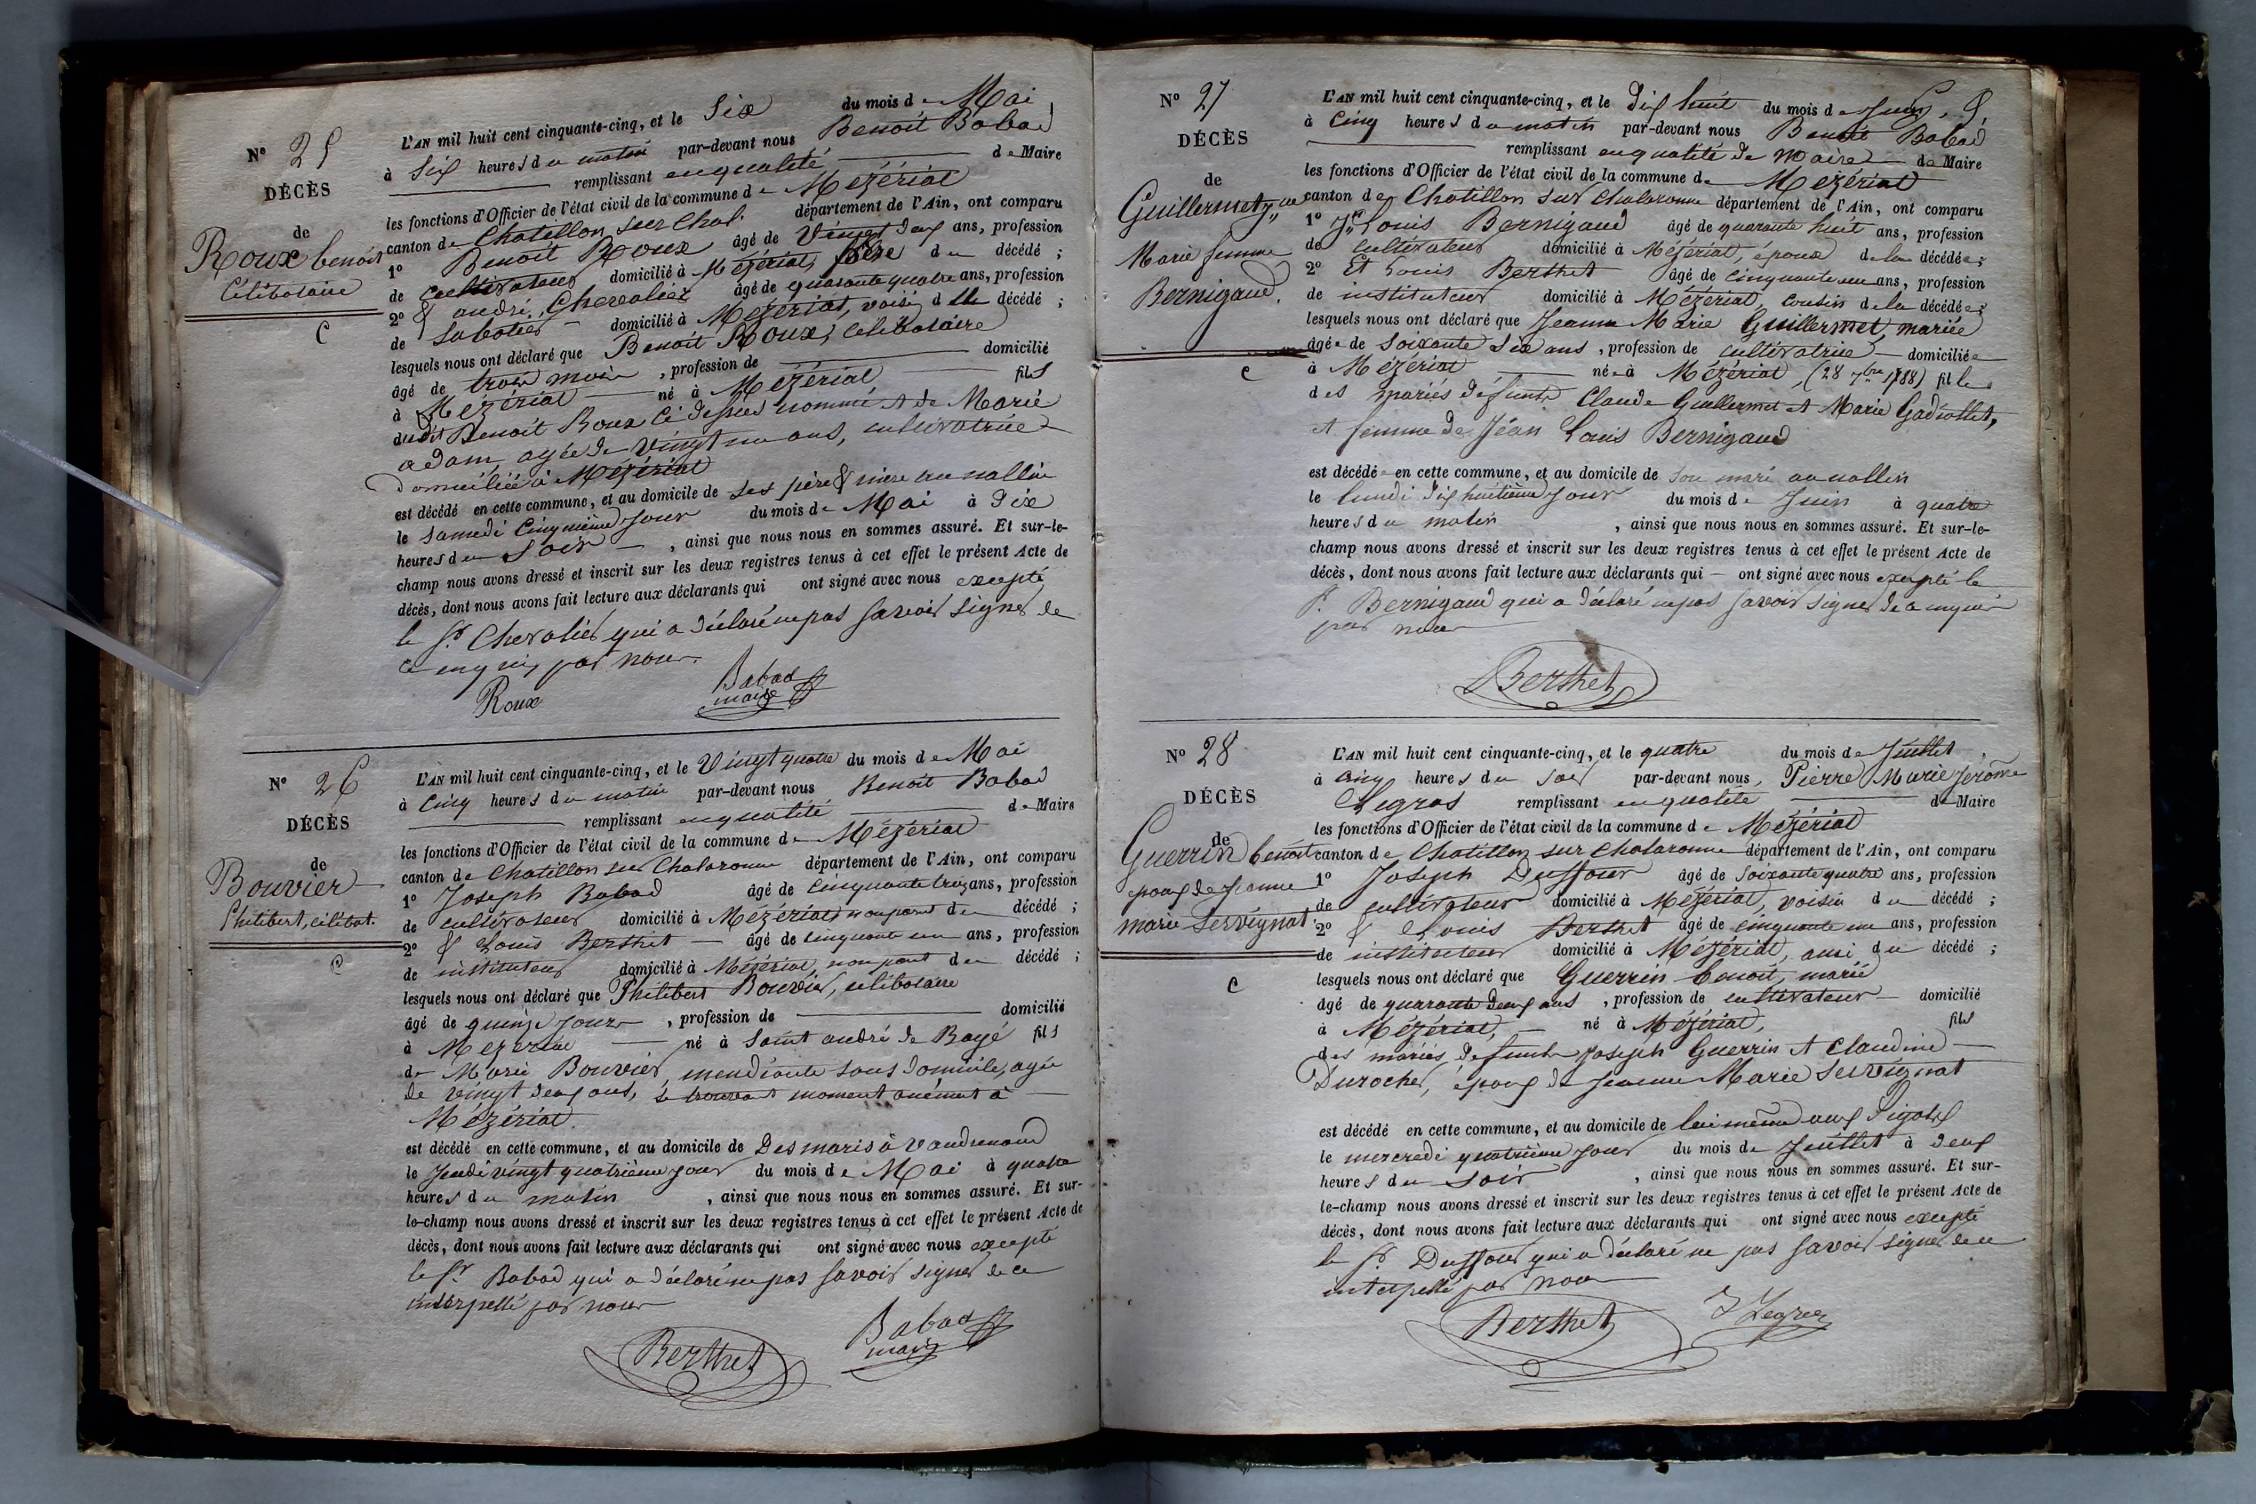 N° 25
DÉCÈS
de
Roux benoit
Célibataire
C
L'AN mil huit cent cinquante-cinq, et le Six du mois de Mai
à Six heures du matin par-devant nous Benoit Babad
remplissant en qualité de Maire
les fonctions d'Officier de l'état civil de la commune de Mézériat
canton de Chatillon sur Chal. département de l'Ain, ont comparu
1° Benoit Roux âgé de Vingt deux ans, profession
de cultivateur domicilié à Mézériat, père du décédé ;
2° & andré Chevalier âgé de quarante quatre ans, profession
de Sabotier domicilié à Mézériat, voisin du décédé ;
lesquels nous ont déclaré que Benoit Roux, célibataire
âgé de trois mois, profession de domicilié
à Mézériat né à Mézériat fils
dudit Benoit Roux ci dessus nommé et de Marie
adam, agée de Vingt un ans, cultivatrice
domiciliée à Mézériat
est décédé en cette commune, et au domicile de ses père & mère
le samedi Cinquième jour du mois de Mai à dix
heures du soir, ainsi que nous nous en sommes assuré. Et sur-le-
champ nous avons dressé et inscrit sur les deux registres tenus à cet effet le présent Acte de
décès, dont nous avons fait lecture aux déclarants qui ont signé avec nous excepté
le Sr. Chevalier qui a déclaré ne pas savoir signer de
ce enquis par nous.
Roux Babad
maire
N° 26
DÉCÈS
de
Bouvier
Philibert, célibat.
C
L'AN mil huit cent cinquante-cinq, et le Vingt quatre du mois de Mai
à Cinq heures du matin par-devant nous Benoit Babad
remplissant en qualité de Maire
les fonctions d'Officier de l'état civil de la commune de Mézériat
canton de Chatillon sur Chalaronne département de l'Ain, ont comparu
1° Joseph Babad âgé de Cinquante trois ans, profession
de cultivateur domicilié à Mézériat non parent du décédé ;
2° & Louis Berthet âgé de cinquante un ans, profession
de instituteur domicilié à Mézériat, non parent du décédé ;
lesquels nous ont déclaré que Philibert Bouvier, célibataire
âgé de quinze jours, profession de domicilié
à Mézériat né à Saint andré de Bagé fils
de Marie Bouvier, mendiante sans domicile, agée
de vingt deux ans, se trouvant momentanément à
Mézériat.
est décédé en cette commune, et au domicile de Desmaris à Vandrenoud
le Jeudi vingt quatrième jour du mois de Mai à quatre
heures du matin, ainsi que nous nous en sommes assuré. Et sur-
le-champ nous avons dressé et inscrit sur les deux registres tenus à cet effet le présent Acte de
décès, dont nous avons fait lecture aux déclarants qui ont signé avec nous excepté
le Sr. Babad qui a déclaré ne pas savoir signer de ce
interpellé par nous
Berthet Babad
maire
N° 27
DÉCÈS
de
Guillermet Jne
Marie femme
Bernigaud.
C
L'AN mil huit cent cinquante-cinq, et le Dix huit du mois de Juin,
à Cinq heures du matin par-devant nous Benoit Babad
remplissant en qualité de maire de Maire
les fonctions d'Officier de l'état civil de la commune de Mézériat
canton de Chatillon sur Chalaronne département de l'Ain, ont comparu
1° Jn Louis Bernigaud âgé de quarante huit ans, profession
de cultivateur domicilié à Mézériat, époux de la décédée ;
2° Et Louis Berthet âgé de cinquante un ans, profession
de instituteur domicilié à Mézériat, cousin de la décédée ;
lesquels nous ont déclaré que Jeanne Marie Guillermet, mariée
âgée de soixante six ans, profession de cultivatrice domiciliée
à Mézériat née à Mézériat, (28 7bre 1788) fille
des mariés défunts Claude Guillermet et Marie Gadiollet,
et femme de Jean Louis Bernigaud
est décédée en cette commune, et au domicile de son mari
le lundi dix huitième jour du mois de Juin à quatre
heures du matin, ainsi que nous nous en sommes assuré. Et sur-le-
champ nous avons dressé et inscrit sur les deux registres tenus à cet effet le présent Acte de
décès, dont nous avons fait lecture aux déclarants qui ont signé avec nous excepté le
Sr. Bernigaud qui a déclaré ne pas savoir signer de ce enquis
par nous
Berthet
N° 28
DÉCÈS
de
Guerrin benoit
époux de Jeanne
marie Servignat.
C
L'AN mil huit cent cinquante-cinq, et le quatre du mois de Juillet
à cinq heures du soir par-devant nous, Pierre Marie Jérome
Legras remplissant en qualité de Maire
les fonctions d'Officier de l'état civil de la commune de Mézériat
canton de Chatillon sur Chalaronne département de l'Ain, ont comparu
1° Joseph Duffour âgé de soixante quatre ans, profession
de cultivateur domicilié à Mézériat, voisin du décédé ;
2° & Louis Berthet âgé de cinquante un ans, profession
de instituteur domicilié à Mézériat, ami du décédé ;
lesquels nous ont déclaré que Guerrin benoit, marié
âgé de quarante deux ans, profession de cultivateur domicilié
à Mézériat, né à Mézériat, fils
des mariés défunts Joseph Guerrin et Claudine
Durochet, époux de Jeanne Marie Servignat
est décédé en cette commune, et au domicile de lui même aux
le mercredi quatrième jour du mois de Juillet à deux
heures du soir, ainsi que nous nous en sommes assuré. Et sur-
le-champ nous avons dressé et inscrit sur les deux registres tenus à cet effet le présent Acte de
décès, dont nous avons fait lecture aux déclarants qui ont signé avec nous excepté
le Sr. Duffour qui a déclaré ne pas savoir signer de ce
interpellé par nous
Berthet J Legras